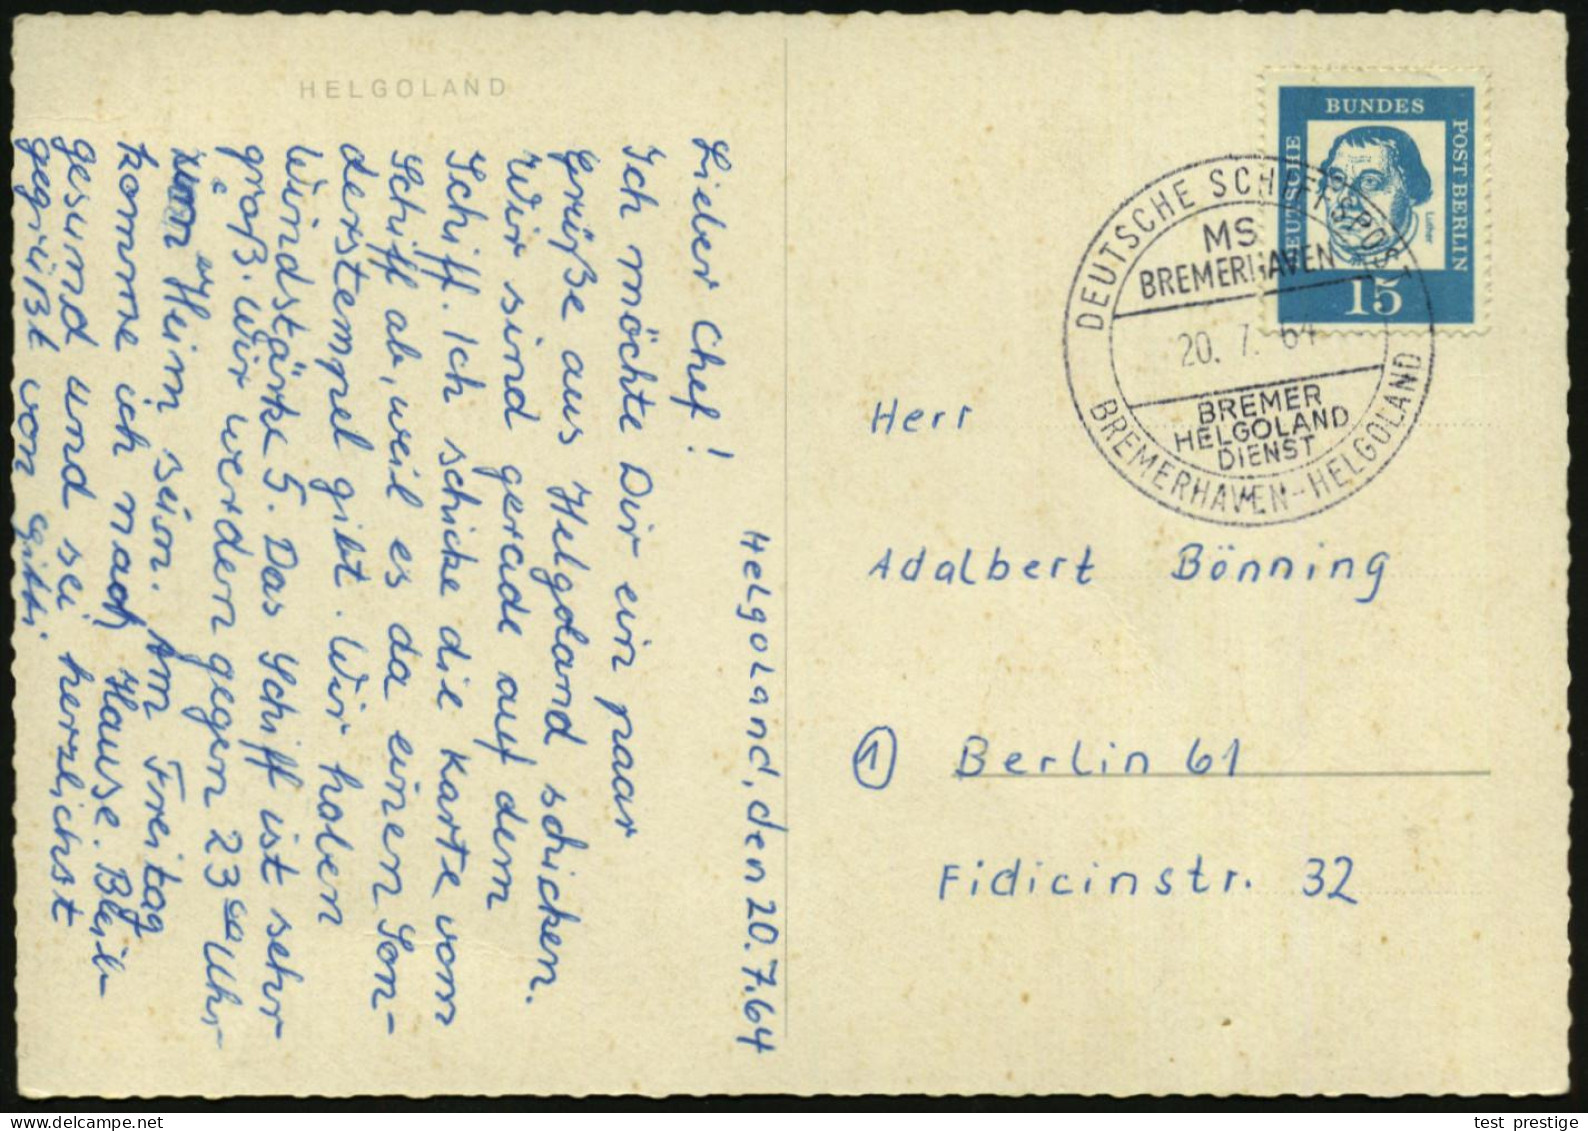 HELGOLAND
Helgoland, den 20.7.64
Lieber Chef!
Ich möchte Dir ein paar
Grüße aus Helgoland schicken.
Wir sind gerade auf dem
Schiff. Ich schicke die Karte vom
Schiff ab, weil es da einen Son-
derstempel gibt. Wir haben
Windstärke 5. Das Schiff ist sehr
groß. Wir werden gegen 23⁰⁰ Uhr
im Heim sein. Am Freitag
komme ich nach Hause. Bleib
gesund und sei herzlichst
gegrüßt von Gitti
DEUTSCHE BUNDES POST BERLIN
Luther
15
DEUTSCHE SCHIFFSPOST
MS
BREMERHAVEN
20. 7. 64
BREMER
HELGOLAND
DIENST
BREMERHAVEN-HELGOLAND
Herr
Adalbert Bönning
1 Berlin 61
Fidicinstr. 32
test_prestige